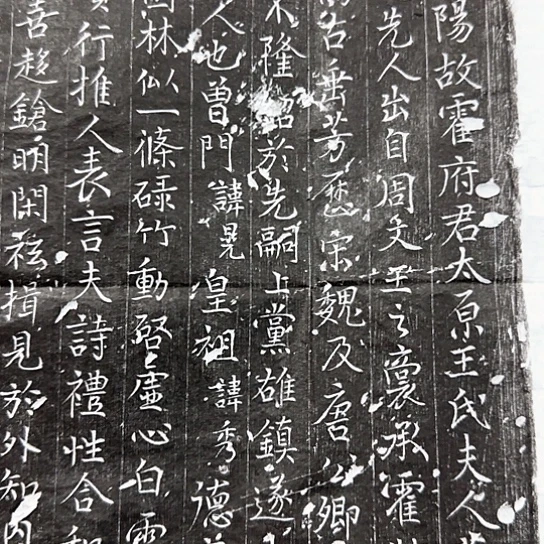 陽故霍府君太原王氏夫人
先人出自周文王之裔承霍
古垂芳歷宋魏及唐公卿
隆詔於先嗣上黨雄鎮遂
人也曾門諱晃皇祖諱秀德
林似一條碌竹動啓虛心白雲
行推人表言夫詩禮性合
喜趍鎗明閑揖見於外知